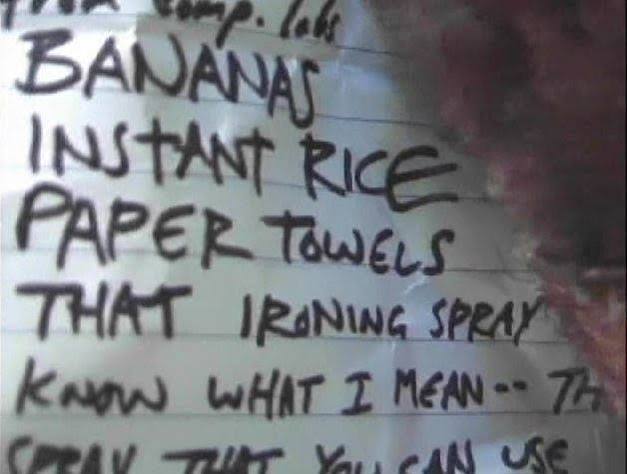 from comp. labs
BANANAS
INSTANT RICE
PAPER TOWELS
THAT IRONING SPRAY
KNOW WHAT I MEAN -- TH
SPRAY THAT YOU CAN USE